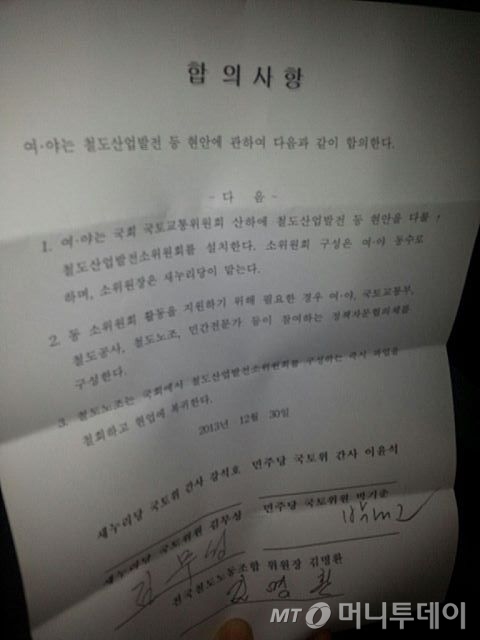 합의사항
여·야는 철도산업발전 등 현안에 관하여 다음과 같이 합의한다.
- 다 음 -
1. 여·야는 국회 국토교통위원회 산하에 철도산업발전 등 현안을 다룰
철도산업발전소위원회를 설치한다. 소위원회 구성은 여·야 동수로
하며, 소위원장은 새누리당이 맡는다.
2. 동 소위원회 활동을 지원하기 위해 필요한 경우 여·야, 국토교통부,
철도공사, 철도노조, 민간전문가 등이 참여하는 정책자문협의체를
구성한다.
3. 철도노조는 국회에서 철도산업발전소위원회를 구성하는 즉시 파업을
철회하고 현업에 복귀한다.
2013년 12월 30일
새누리당 국토위 간사 강석호 민주당 국토위 간사 이윤석
새누리당 국토위원 김무성 민주당 국토위원 박기춘
김무성
전국철도노동조합 위원장 김명환
김명환
MT 머니투데이